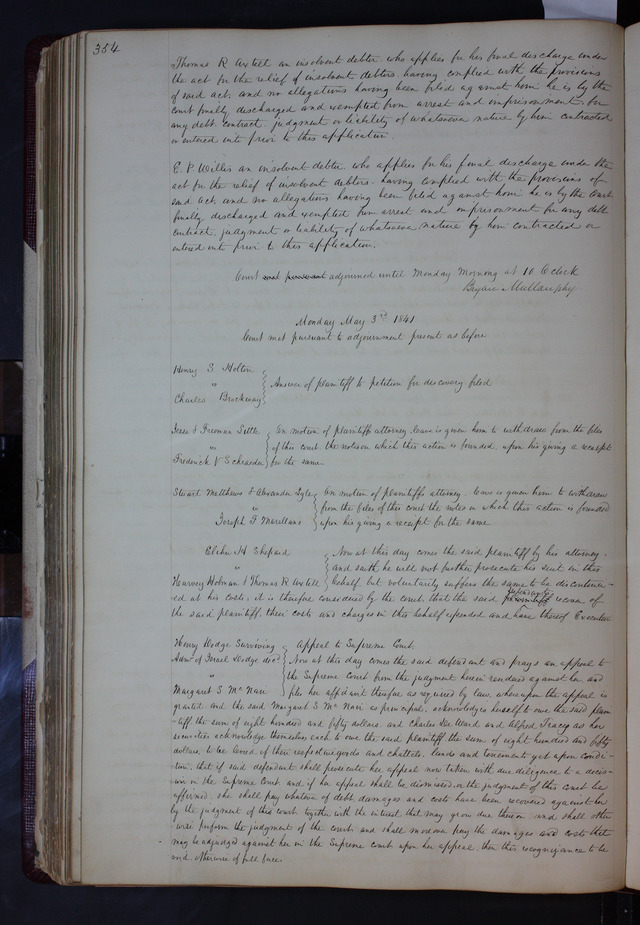 354
Thomas R Axtell an insolvent debtor who applies for his final discharge under
the act for the relief of insolvent debtors having complied with the provisions
of said act, and no allegations having been filed against him he is by the
court finally discharged and exempted from arrest and imprisonment for
any debt contract, judgment or liability of whatsoever nature by him contracted
or entered into prior to this application.
E. P. Willis an insolvent debtor who applies for his final discharge under the
act for the relief of insolvent debtors, having complied with the provisions of
said act, and no allegations having been filed against him he is by the Court
finally discharged and exempted from arrest and imprisonment for any debt
contract, judgment or liability of whatsoever nature by him contracted or
entered into prior to this application.
Court met pursuant adjourned until Monday Morning at 10 O clock
Bryan Mullanphy
Monday May 3rd 1841
Court met pursuant to adjournment present as before
Henry S Holton
" Answer of plaintiff to petition for discovery filed
Charles Brockway
Jesse & Freeman Settle On motion of plaintiffs attorney, leave is given him to withdraw from the files
" of this court the notes on which this action is founded, upon his giving a receipt
Frederick V Schrader for the same
Stuart Matthews & Alexander Lyle On motion of plaintiffs attorney, leave is given him to withdraw
" from the files of this court the notes on which this action is founded
Joseph F Marellano upon his giving a receipt for the same
Elihu H Shepard Now at this day comes the said plaintiff by his attorney,
" and saith he will not further prosecute his suit in this
Harvey Holman & Thomas R Axtell behalf, but voluntarily suffers the same to be discontinu-
ed at his costs; it is therefore considered by the court, that the said plaintiff defendants recover of
the said plaintiff, their costs and charges in this behalf expended and have thereof Execution
Henry Dodge Surviving Appeal to Supreme Court.
Admr of Israel Dodge decd Now at this day comes the said defendant and prays an appeal to
" the Supreme Court from the judgment herein rendered against her and
Margaret S McNair files her affidavit therefor as required by law whereupon the appeal is
granted and the said Margaret S McNair as principal, acknowledges herself to owe the said plain-
-tiff the sum of eight hundred and fifty dollars and Charles De Ward and Alfred Tracy as her
securities acknowledge themselves each to owe the said plaintiff the sum of eight hundred and fifty
dollars, to be levied of their respective goods and chattels, lands and tenements yet upon condi-
tion, that if said defendant shall prosecute her appeal now taken with due diligence to a decis-
ion in the Supreme Court and if her appeal shall be dismissed or the judgment of this court be
affirmed, she shall pay whatever of debt, damages and costs have been recovered against her
by the judgment of this court together with the interest that may grow due thereon and shall other
wise perform the judgment of the court and shall moreover pay the damages and costs that
may be adjudged against her in the Supreme court upon her appeal, then this recognizance to be
void, otherwise of full force.